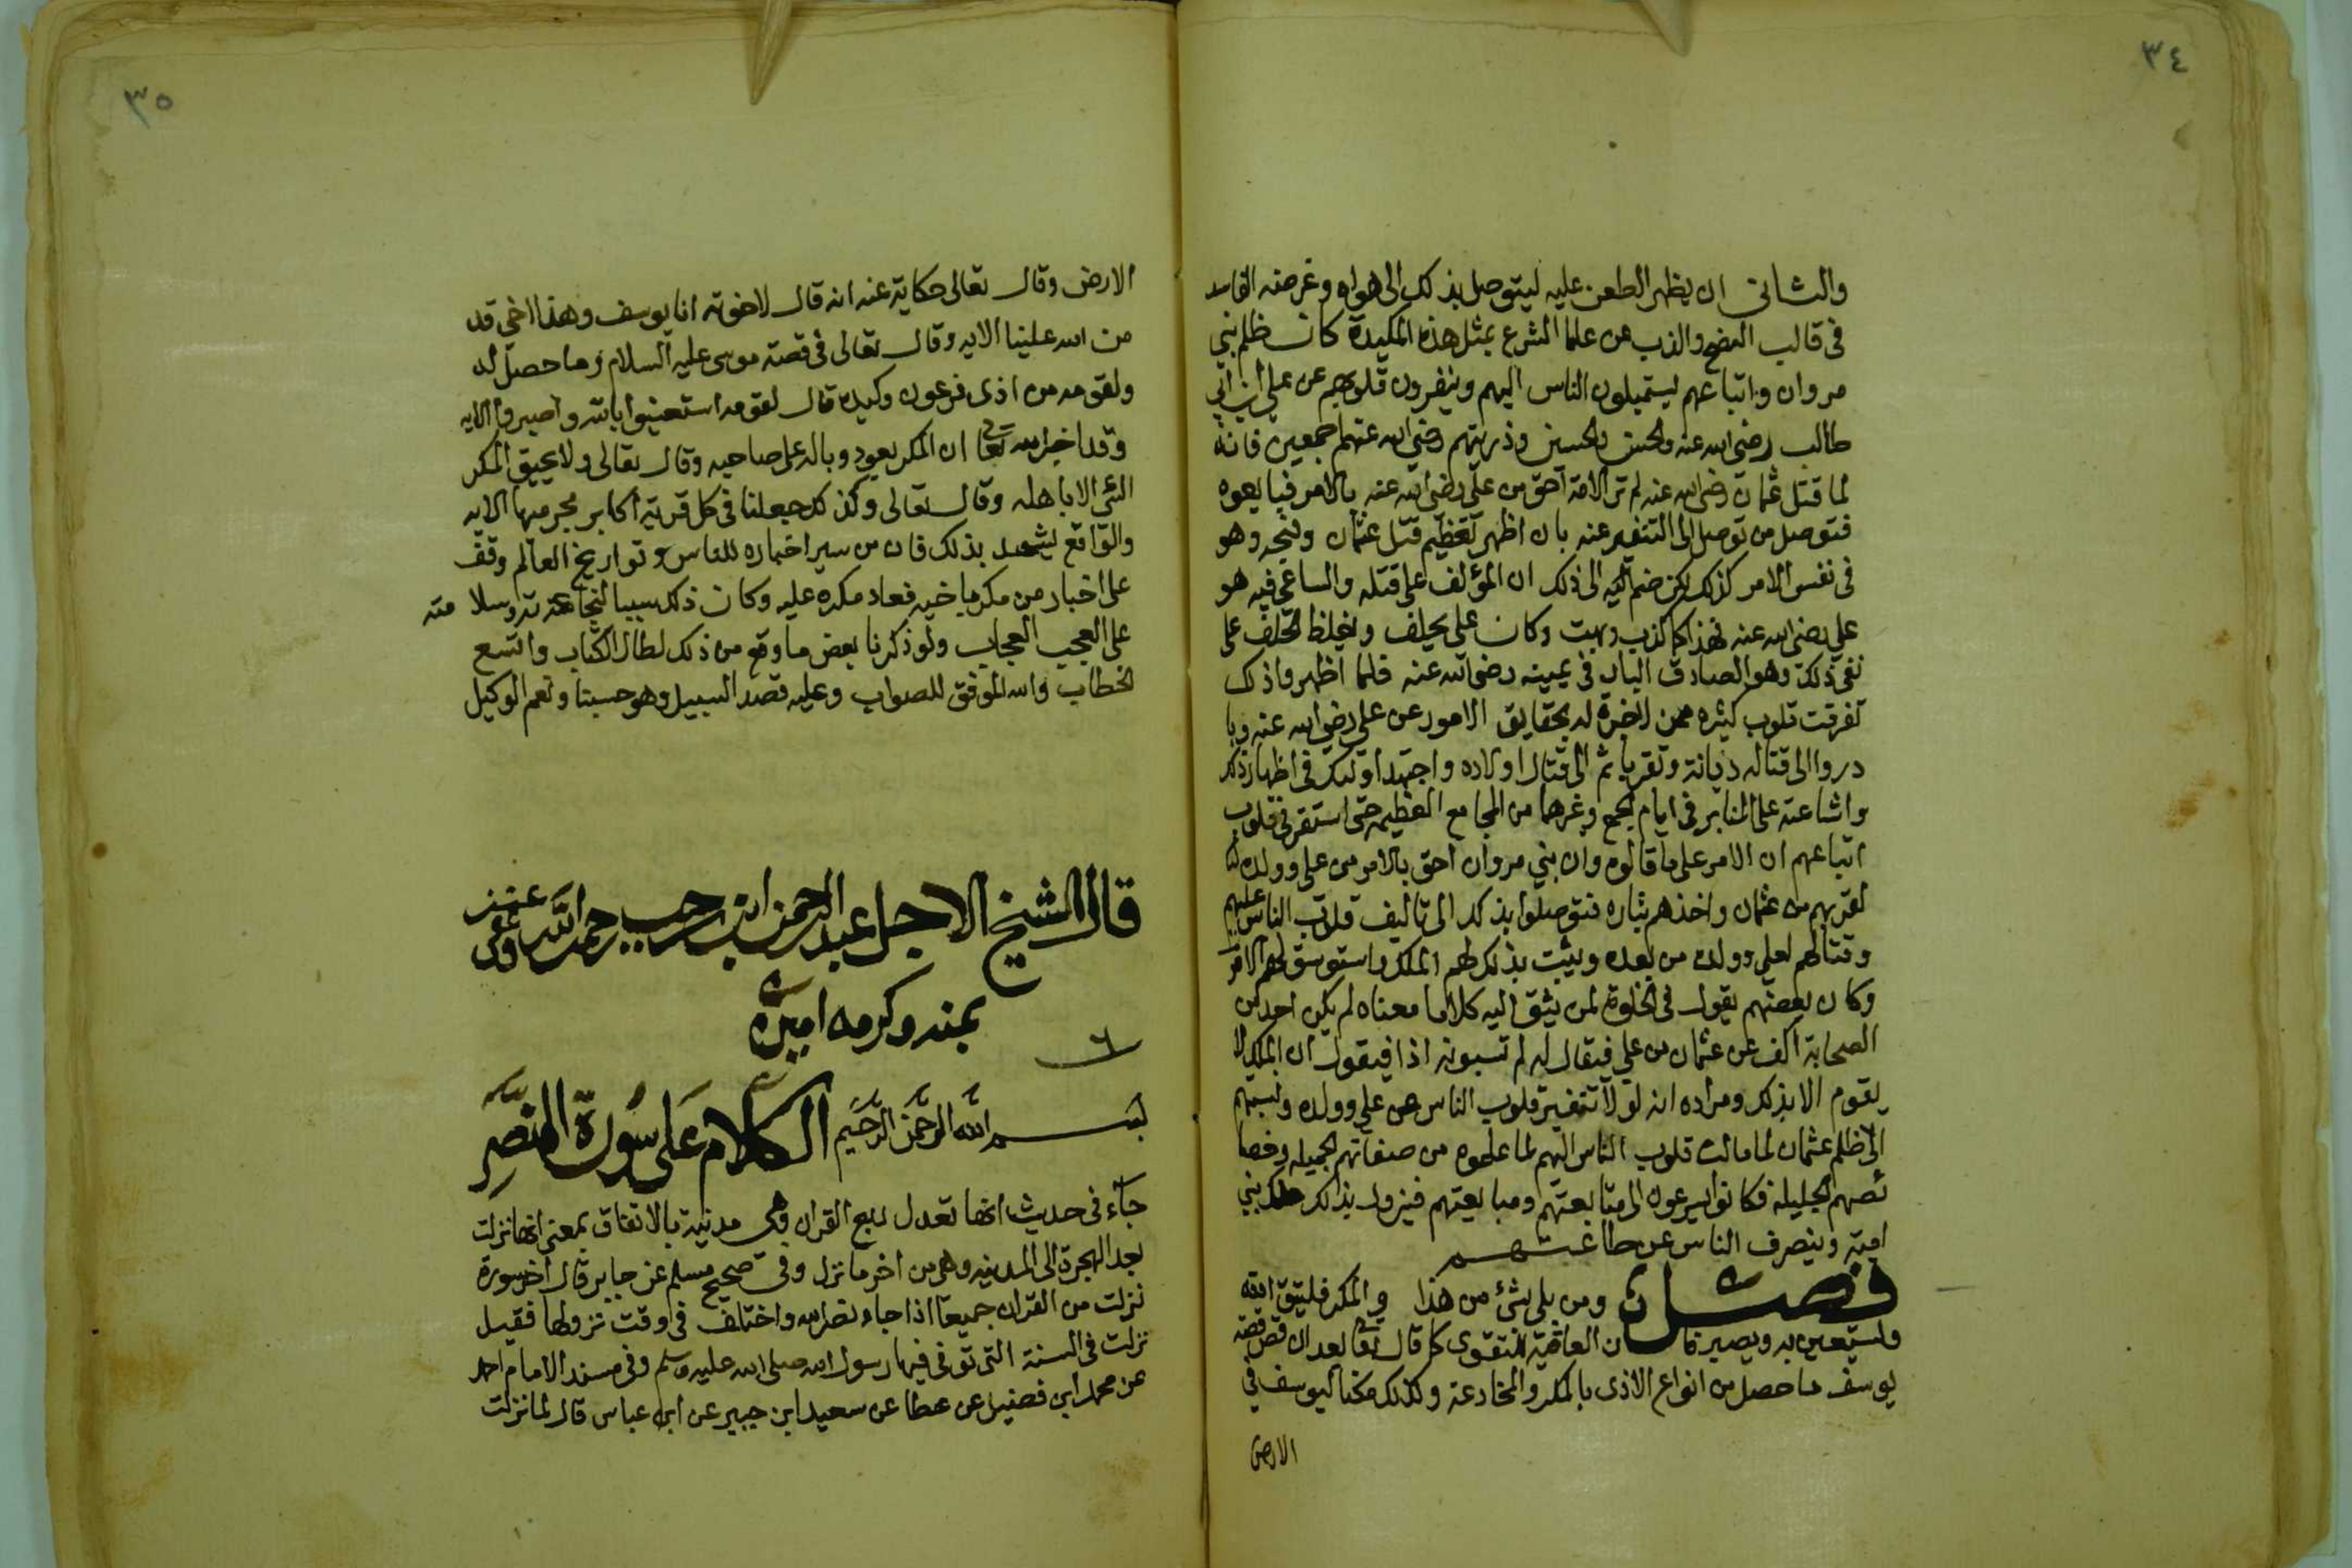 ٣٤
والثاني ان يظهر الطعن عليه ليتوصل بذلك الى هواه وغرضه الفاسد
في قالب النصح والذب عن علما الشرع بمثل هذه المكيدة كان ظلم بني
مروان واتباعهم يستميلون الناس اليهم وينفرون قلوبهم عن علي ابن ابي
طالب رضي الله عنه والحسن والحسين وذريتهم رضي الله عنهم اجمعين فانه
لما قتل عثمان رضي الله عنه لم تر الامة احق من علي رضي الله عنه بالامر فبايعوه
فتوصل من توصل الى التنفير عنه بان اظهر تعظيم قتل عثمان وقبحه وهو
في نفس الامر كذلك لكن ضم اليه الى ذلك ان المؤلف على قتله والساعي فيه هو
علي رضي الله عنه فهذا كما كذب وبهت وكان علي يحلف ويغلظ الحلف على
نفي ذلك وهو الصادق البار في يمينه رضي الله عنه فلما اظهروا ذلك
تفرقت قلوب كثيره ممن لاخبرة له بحقايق الامور عن علي رضي الله عنه وبا
دروا الى قتاله ديانة وتقربا ثم الى قتال اولاده واجتهد اوليك في اظهار ذلك
واشاعته على المنابر في ايام الجمع وغيرها من المجامع العظيمه حتى استقر في قلوب
اتباعهم ان الامر على ما قالوه وان بني مروان احق بالامر من علي وولده
لقربهم من عثمان واخذهم بثاره فتوصلوا بذلك الى تاليف قلوب الناس عليهم
وقتالهم لعلي وولده من بعده ويثبت بذلك لهم الملك واستوسق لهم الامر
وكان بعضهم يقول في الخلوة لمن يثق اليه كلاما معناه لم يكن احد من
الصحابة اكف عن عثمان من علي فيقال له لم تسبونه اذا فيقول ان الملك لا
يقوم الا بذلك ومراده انه لولا تنفير قلوب الناس عن علي وولده ونسبتهم
الى ظلم عثمان لما مالت قلوب الناس اليهم لما علموه من صفاتهم الجميله وخصا
ئصهم الجليلة فكانوا يسرعون الى متابعتهم ومبايعتهم فيزول بذلك ملك بني
امية وينصرف الناس عن طاعتهم
فصل ومن بلي بشئ من هذا والمكر فليتق الله
وليستعين به ويصبر فان العاقبة للتقوى كما قال تعالى بعد ان قص قصة
يوسف ما حصل من انواع الاذى بالمكر والمخادعة وكذلك مكنا ليوسف في
الارض
٣٥
الارض وقال تعالى حكاية عنه انه قال لاخوته انا يوسف وهذا اخي قد
من الله علينا الايه وقال تعالى في قصة موسى عليه السلام وما حصل له
ولقومه من اذى فرعون وكيده قال لقومه استعينوا بالله واصبروا الايه
وقد اخبر الله تعالى ان المكر يعود وباله على صاحبه وقال تعالى ولا يحيق المكر
السئ الا باهله وقال تعالى وكذلك جعلنا في كل قرية اكابر مجرميها الايه
والواقع يشهد بذلك فان من سبر اخباره للناس وتواريخ العالم وقف
على اخبار من مكر باخيه فعاد مكره عليه وكان ذلك سببا لنجاعته وسلامته
على العجب العجاب ولو ذكرنا بعض ما وقع من ذلك لطال الكتاب واتسع
الخطاب والله الموفق للصواب وعليه قصد السبيل وهو حسبنا ونعم الوكيل
قال الشيخ الاجل عبد الرحمن ابن رجب رحمه الله وعفى عنه
بمنه وكرمه امين
٦
بسم الله الرحمن الرحيم الكلام على سورة النصر
جاء في حديث انها تعدل ربع القران وهي مدنية بالاتفاق بمعنى انها نزلت
بعد الهجرة الى المدينه وهي من اخر ما نزل وفي صحيح مسلم عن جابر قال اخر سورة
نزلت من القران جميعا اذا جاء نصر الله واختلف في وقت نزولها فقيل
نزلت في السنة التي توفي فيها رسول الله صلى الله عليه وسلم وفي مسند الامام احمد
عن محمد ابن فضيل عن عطا عن سعيد ابن جبير عن ابن عباس قال لما نزلت